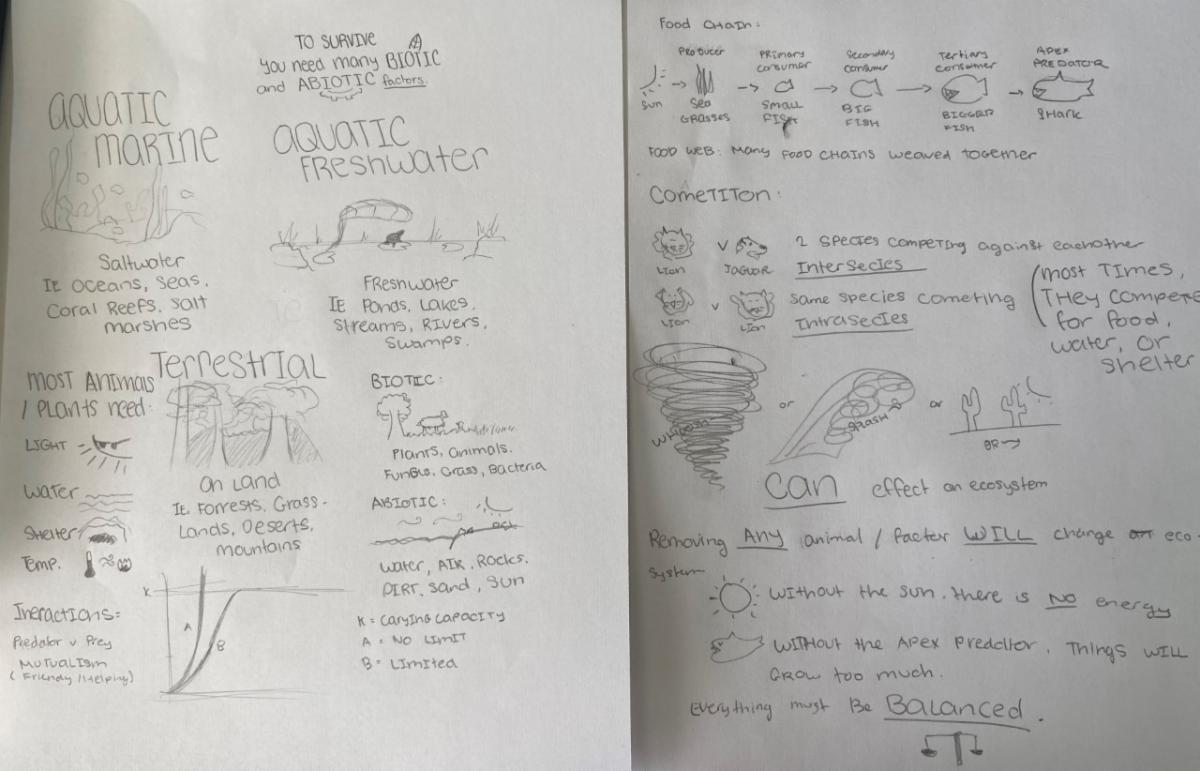 TO SURVIVE
you need many BIOTIC
and ABIOTIC factors.
AQUATIC
MARINE
Saltwater
IE Oceans, Seas,
Coral Reefs, Salt
marshes
AQUATIC
FRESHWATER
FRESHWATER
IE Ponds, Lakes,
Streams, Rivers,
Swamps.
Terrestrial
On Land
IE. Forrests, Grass-
Lands, Deserts,
mountains
most Animals
/ Plants need:
LIGHT
Water
Shelter
Temp.
Ineractions:
Predator v Prey
Mutualism
(Friendly/Helping)
K
A
B
BIOTIC:
Plants, Animals.
Fungus, Grass, Bacteria
ABIOTIC:
Water, AIR, Rocks.
DIRT, Sand, Sun
K = Carying Capacity
A = NO LIMIT
B = Limited
Food Chain:
Sun
Producer
Sea
GRASSES
Primary
consumer
Small
Fish
Secondary
consumer
BIG
FISH
Tertiary
consumer
BIGGER
FISH
APEX
PREDATOR
Shark
FOOD WEB: Many FOOD CHAINS weaved together
COMETITON:
Lion
V
JAGUAR
2 species competing against eachother
Intersecies
Lion
V
Lion
same species cometing
Intrasecies
(most TIMES,
THey compete
for food,
water, or
shelter
WHOOSH
or
SPLASH
or
BR
Can effect an ecosystem
Removing Any animal / Factor WILL change eco-
system
WITHOUT the sun, there is NO energy
WITHOUT the Apex Predator, Things WILL
Grow too much.
Everything must Be Balanced.